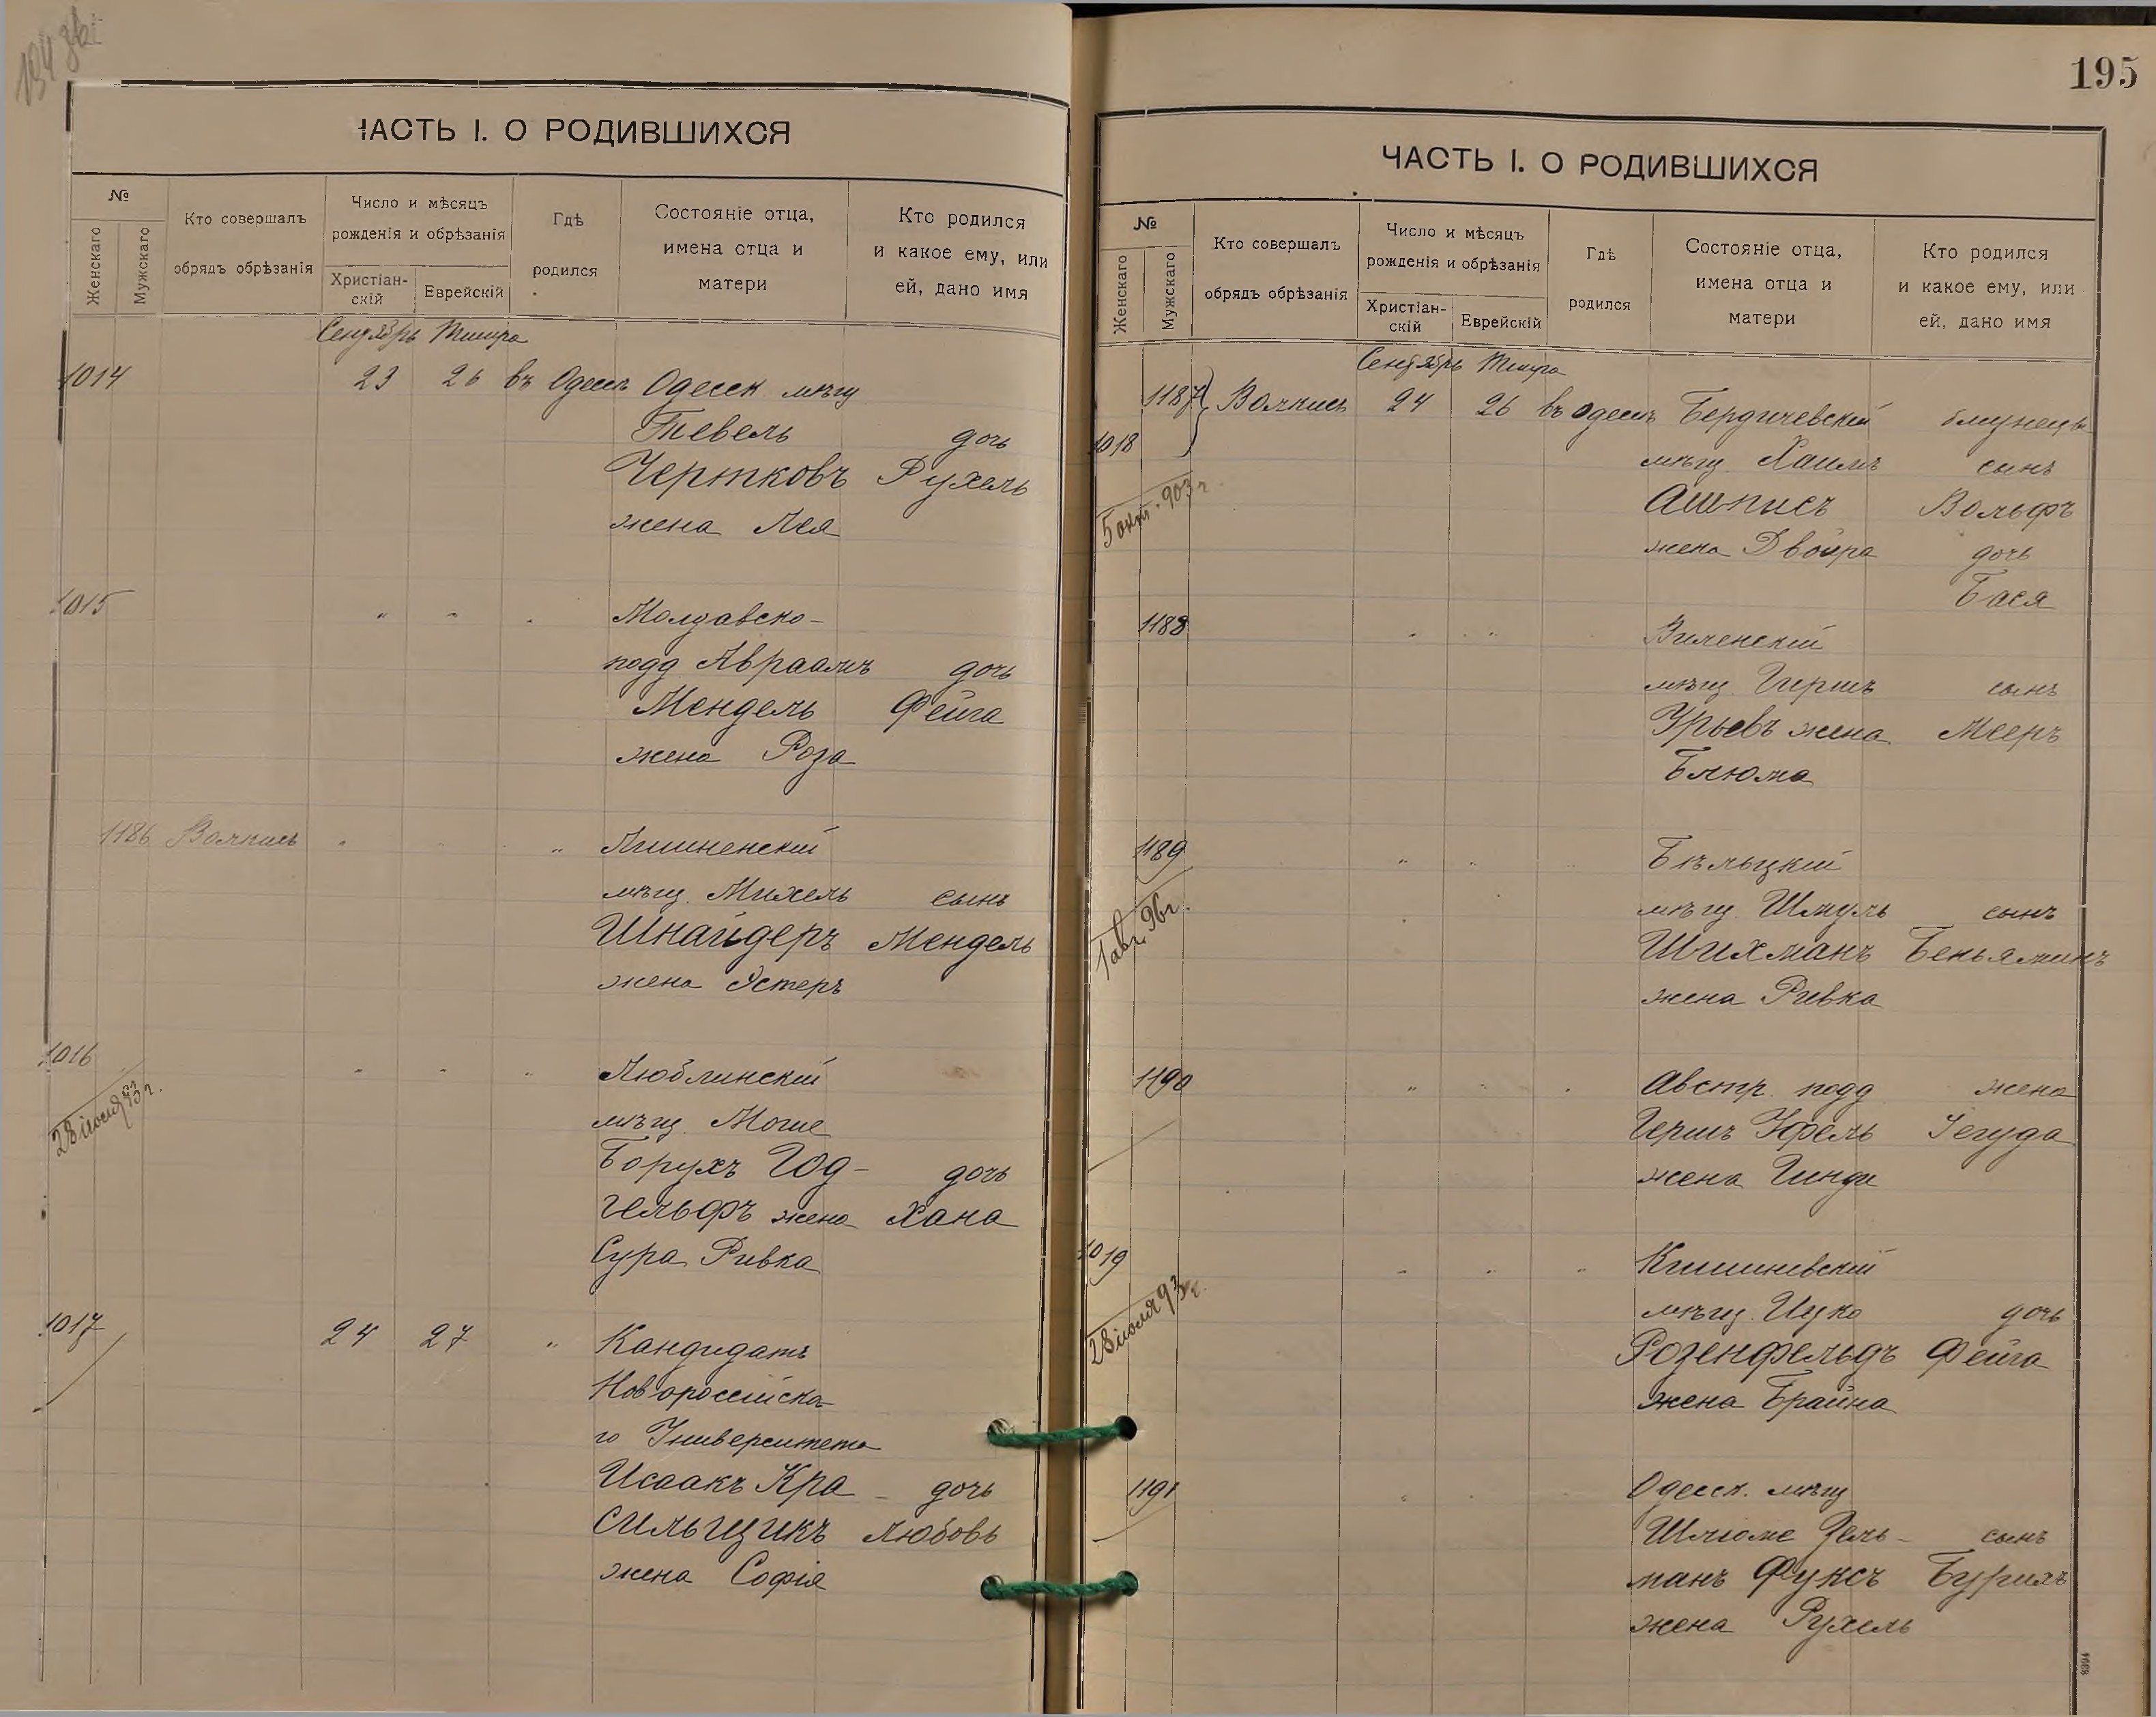 ЧАСТЬ I. О РОДИВШИХСЯ
№
Женскаго
Мужскаго
Кто совершалъ
обрядъ обрѣзанія
Число и мѣсяцъ
рожденія и обрѣзанія
Христіан-
скій
Еврейскій
Гдѣ
родился
Состояніе отца,
имена отца и
матери
Кто родился
и какое ему, или
ей, дано имя
Сентябрь Тишра
1014 23 26 въ Одессѣ Одесск мѣщ
Тевель дочь
Чертковъ Рухель
жена Лея
1015 " " " Молдавско-
подд Авраамъ дочь
Мендель Фейга
жена Роза
1186 " " "
мѣщ. Михель сынъ
Шнайдеръ Мендель
жена Эстеръ
1016 " " " Люблинскій
28 іюля 93 г.
мѣщ. Моше
Борухъ Год-
гельфъ жена дочь
Хана
Сура Ривка
1017 24 27 " Кандидатъ
Новороссійска-
го Университета
Исаакъ Кра- дочь
сильщикъ Любовь
жена Софія
195
ЧАСТЬ I. О РОДИВШИХСЯ
№
Женскаго
Мужскаго
Кто совершалъ
обрядъ обрѣзанія
Число и мѣсяцъ
рожденія и обрѣзанія
Христіан-
скій
Еврейскій
Гдѣ
родился
Состояніе отца,
имена отца и
матери
Кто родился
и какое ему, или
ей, дано имя
Сентябрь Тишра
1187 24 26 въ Одессѣ Бердичевскій близнецы
1018 мѣщ. Хаимъ сынъ
5 окт. 903 г.
Ашписъ Вольфъ
жена Двойра дочь
Бася
1188 " " Виленскій
мѣщ. Гершъ сынъ
Урьевъ жена Мееръ
Блюма
1189 " " Бѣльцкій
1 авг. 96 г.
мѣщ. Шмуль сынъ
Шихманъ Беньяминъ
жена Ривка
1190 " " " Австр. подд жена
Гершъ Іегуда
жена
1019 " " " Кишиневскій
28 іюля 93 г.
мѣщ. Ицко дочь
Розенфельдъ Фейга
жена Брайна
1191 " " " Одесск. мѣщ
Шлиоме Зель- сынъ
манъ Фуксъ Бурихъ
жена Рухель